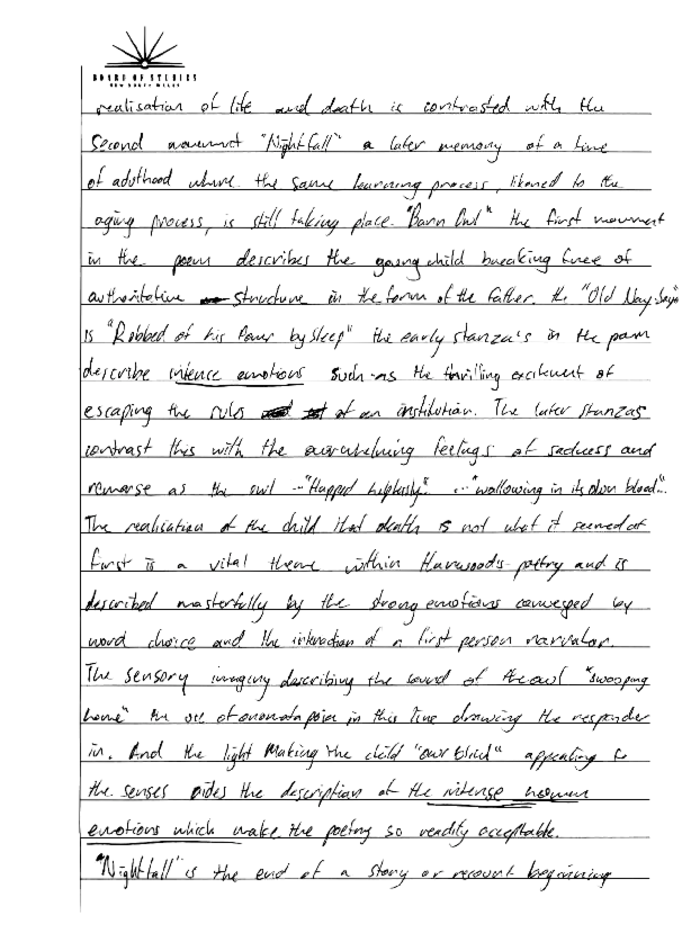 BOARD OF STUDIES
NEW SOUTH WALES
realisation of life and death is contrasted with the
second movement "Nightfall" a later memory of a time
of adulthood where the same learning process, likened to the
aging process, is still taking place. "Barn Owl" the first movement
in the poem describes the young child breaking free of
authoritative structure in the form of the father. the "Old No-Sayer"
is "Robbed of his Power by Sleep" the early stanza's in the poem
describe intence emotions such as the thrilling excitement of
escaping the rules of an institution. The later stanzas
contrast this with the overwhelming feelings of sadness and
remorse as the owl - "flapped helplessly" ... "wallowing in its own blood"...
The realisation of the child that death is not what it seemed at
first is a vital theme within Harwoods poetry and is
described masterfully by the strong emotions conveyed by
word choice and the interaction of a first person narrator.
The sensory imagery describing the sound of the owl "swooping
home" the use of onomatapoiea in this line drawing the responder
in. And the light Making the child "owl blind" appealing to
the senses aides the description of the intense human
emotions which make the poetry so readily acceptable.
"Nightfall" is the end of a story or recount beginning